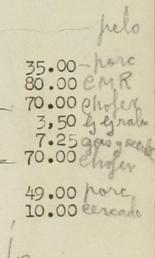 pelo
35.00 - porc
80.00 EMR
70.00 chofer
3,50
7.25 gas y
70.00 chofer
49.00 porc
10.00 cercado